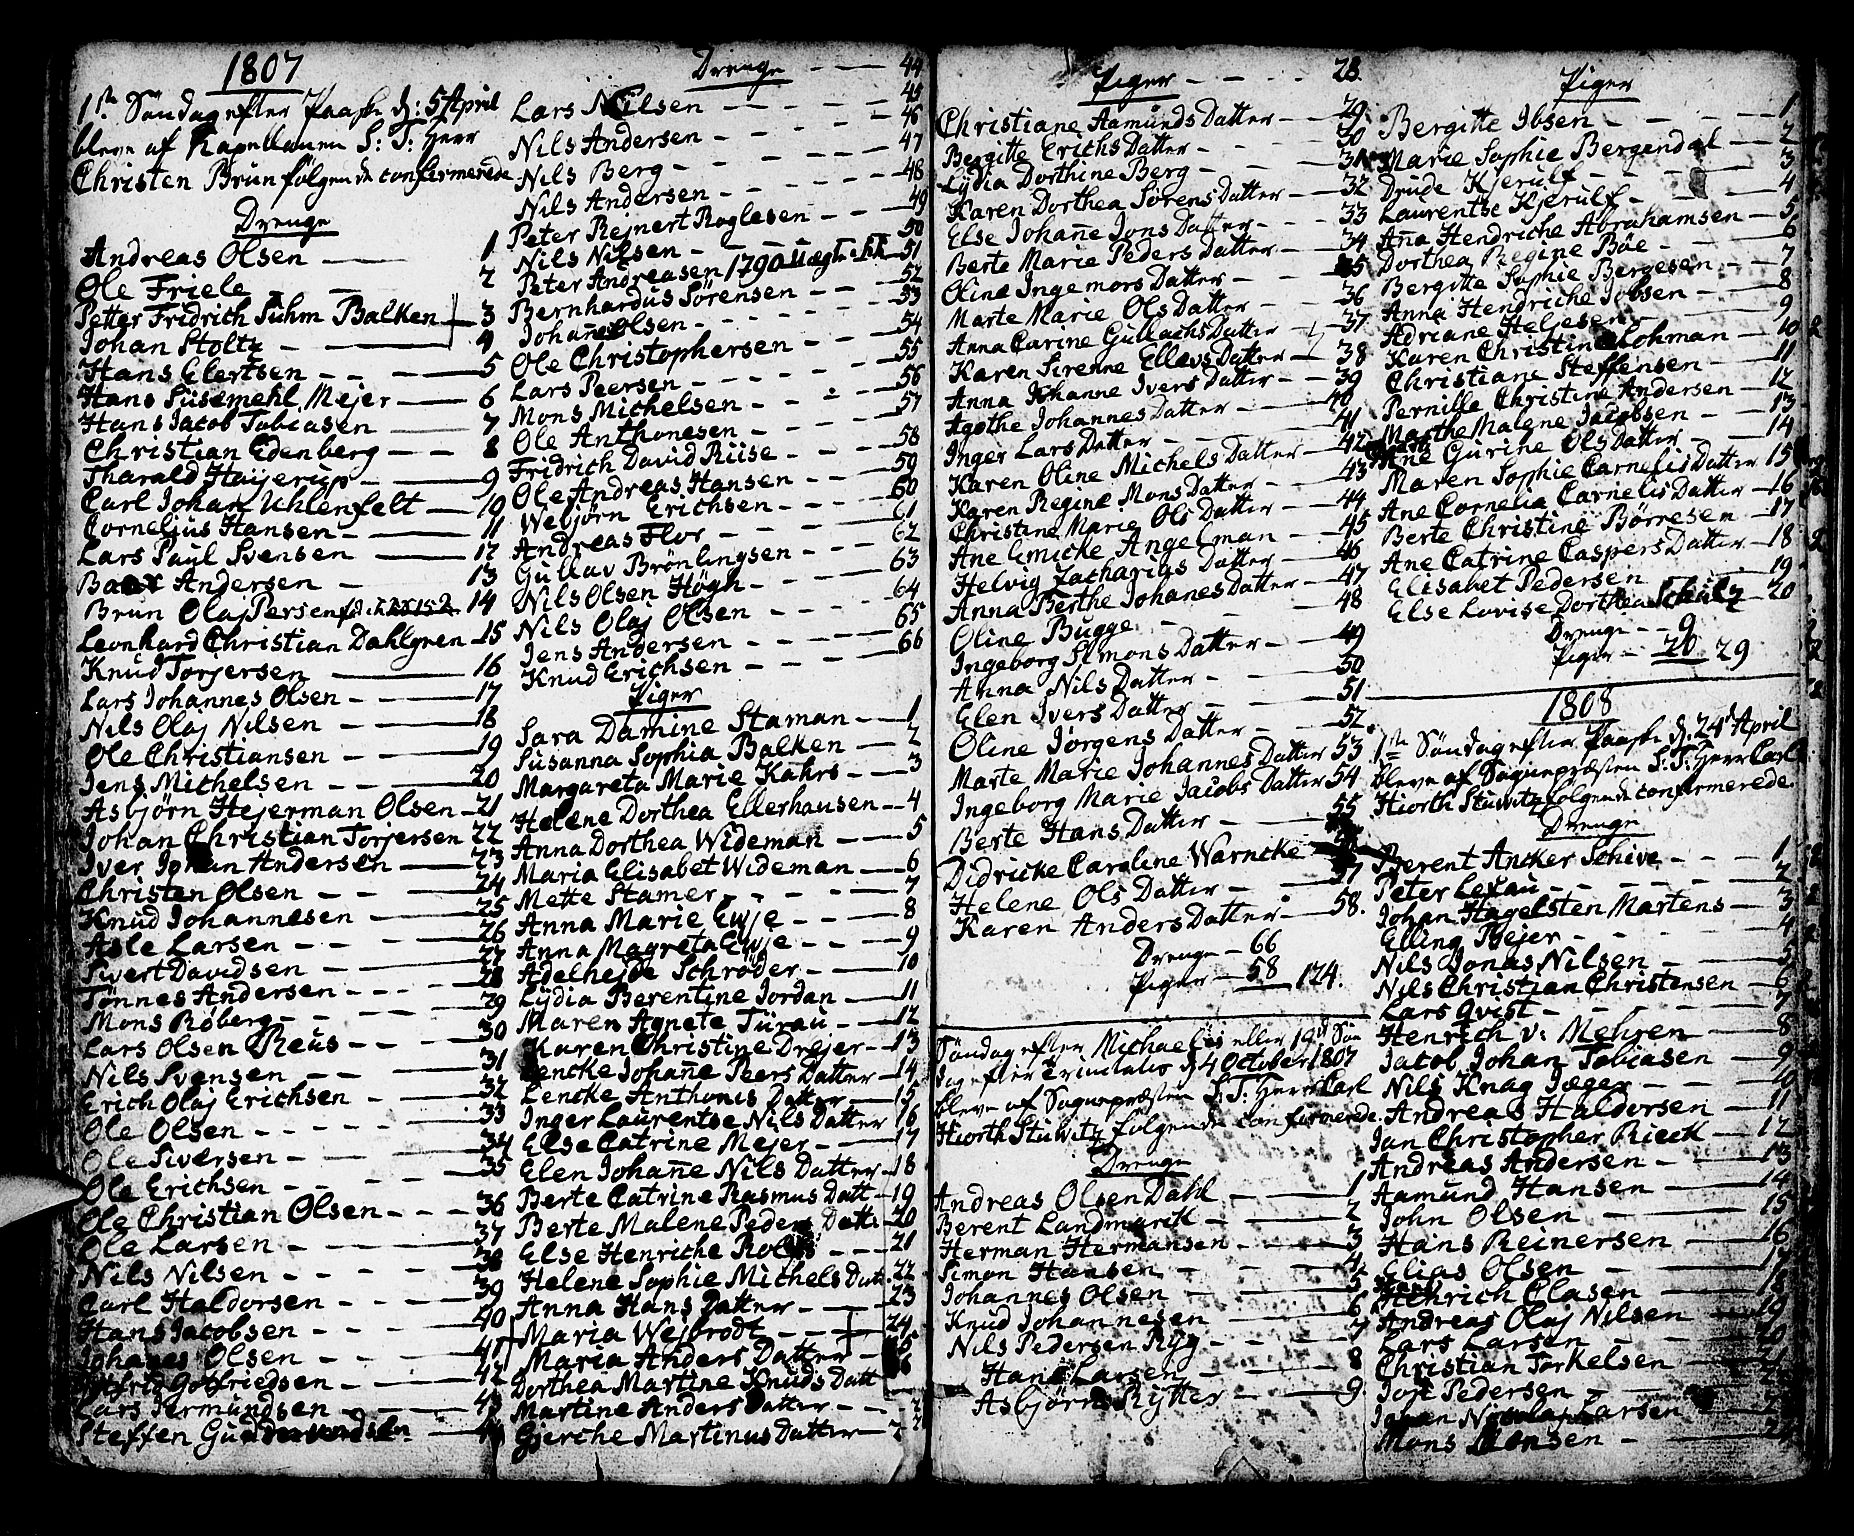 1807
1ste Søndag efter Paaske d: 5 April
bleve af Kapellanen S: T: Herr
Christen Brun følgende confirmerede
Drenge
Andreas Olsen — 1
Ole Friele — 2
Petter Fridrich Suhm Balken — 3
Johan Stoltz — 4
Hans Elertsen — 5
Hans Susemehl Mejer — 6
Hans Jacob Tobiasen — 7
Christian Edenberg — 8
Tharald Høyerup — 9
Carl Johan Uhlenfelt — 10
Cornelius Hansen — 11
Lars Paul Svensen — 12
Andersen — 13
Brun Olaj Persen — 14
Leonhard Christian Dahlgren — 15
Knud Torjersen — 16
Lars Johannes Olsen — 17
Nils Olaj Nilsen — 18
Ole Christiansen — 19
Jens Michelsen — 20
Asbjørn Hejerman Olsen — 21
Johan Christian Torjersen 22
Iver Johan Andersen — 23
Christen Olsen — 24
Knud Johannesen — 25
Asle Larsen — 26
Sivert Davidsen — 27
Tønnes Andersen — 28
Mons Røberg — 29
Lars Olsen Reus — 30
Nils Svensen — 31
Erich Olaj Erichsen — 32
Ole Olsen — 33
Ole Siversen — 34
Ole Erichsen — 35
Ole Christian Olsen — 36
Ole Larsen — 37
Nils Nilsen — 38
Carl Haldorsen — 39
Hans Jacobsen — 40
Johanes Olsen — 41
Gotfriedsen — 42
Lars Germundsen — 43
Steffen Gundersen
Drenge — 44
Lars Nilsen — 45
Nils Andersen — 46
Nils Berg — 47
Nils Andersen — 48
Peter Rejnert Roglesen — 49
Nils Nilsen — 50
Peter Andreasen 1790 — 51
Bernhardus Sørensen — 52
Johanes Olsen — 53
Ole Christophersen — 54
Lars Peersen — 55
Mons Michelsen — 56
Ole Anthonesen — 57
Fridrich David Riise — 58
Ole Andreas Hansen — 59
Webjørn Erichsen — 60
Andreas Flor — 61
Gullav Brønlingsen — 62
Nils Olsen Högh — 63
Nils Olaj Olsen — 64
Jens Andersen — 65
Knud Erichsen — 66
Piger
Sara Damine Staman — 1
Susanna Sophia Balken — 2
Margareta Marie Kahrs — 3
Helene Dorthea Ellerhausen — 4
Anna Dorthea Wideman — 5
Maria Elisabet Wideman — 6
Mette Stamer — 7
Anna Marie Gyje — 8
Anna Magreta Gyje — 9
Adelhejde Schrøder — 10
Lydia Berentine Jordan — 11
Maren Agnete Türau — 12
Karen Christine Drejer — 13
Lencke Johane Peers Datter — 14
Lencke Anthonis Datter — 15
Inger Laurentse Nils Datter 16
Else Catrine Mejer — 17
Elen Johane Nils Datter — 18
Berte Catrine Rasmus Datt — 19
Berte Malene Peders Datt: 20
Else Henriche — 21
Helene Sophie Michels Dat: 22
Anna Hans Datter — 23
Maria Wejbrodt — 24
Maria Anders Datter
Dorthea Martine Knuds Datt
Martine Anders Datter
Gjerche Martinus Datter
Piger — 28
Christiane Aamunds Datter — 29
Bergitte Erichs Datter — 30
Lydia Dorthine Berg — 31
Karen Dorthea Sørens Datter — 32
Else Johane Jons Datter — 33
Berte Marie Peders Datter — 34
Oline Ingemors Datter — 35
Marte Marie Ols Datter — 36
Anna Carine Gullachs Datter — 37
Karen Sirenne Ellevs Datter — 38
Anna Johanne Ivers Datter — 39
Agothe Johannes Datter — 40
Inger Lars Datter — 41
Karen Oline Michels Datter — 42
Karen Regine Mons Datter — 43
Christine Marie Ols Datter — 44
Ane Emicke Angelman — 45
Helvig Zacharias Datter — 46
Anna Berthe Johanes Datter — 47
Oline Bugge — 48
Ingeborg Simons Datter — 49
Anna Nils Datter — 50
Elen Ivers Datter — 51
Oline Jørgens Datter — 52
Marte Marie Johannes Datter 53
Ingeborg Marie Jacobs Datter 54
Berte Hans Datter — 55
Didricke Caroline Warncke
Helene Ols Datter — 57
Karen Anders Datter — 58.
Drenge — 66
Piger — 58 124.
Søndag efter Michaelis eller 19de Søn
dag efter Trinitatis d. 4 October 1807
bleve af Sognepræsten S. T. Herr Carl
Hiorth Stuwitz følgende confirmerede.
Drenge
Andreas Olsen Dahl — 1
Berent Landmarck — 2
Herman Hermansen — 3
Simon Hansen — 4
Johannes Olsen — 5
Knud Johannesen — 6
Nils Pedersen Ryg — 7
Hans Larsen — 8
Asbjørn Rytter — 9
Piger
Bergitte Ibsen — 1
Marie Sophie Bergendal — 2
Drude Kjerulf — 3
Laurentse Kjerulf — 4
Aña Hendriche Abrahamsen — 5
Dorthea Regine Bøe — 6
Bergitte Sophie Bergesen — 7
Anna Hendriche Jobsen — 8
Adriane Helgesen — 9
Karen Christine Lohman — 10
Christiane Steffensen — 11
Pernille Christine Andersen — 12
Marthe Malene Jacobsen — 13
Ane Gurine Ols Datter — 14
Maren Sophie Carnelis Datter 15
Ane Cornelia Carnelis Datter — 16
Berte Christine Børresen — 17
Ane Catrine Caspers Datter — 18
Elisabet Pedersen — 19
Else Lovise Dorthea Schulz — 20
Drenge — 9
Piger — 20 29
1808
1ste Søndag efter Paaske d. 24de April
bleve af Sognepræsten S. T. Herr Carl
Hiorth Stuwitz følgende confirmerede.
Drenge
Berent Ancker Schive — 1
Peter Lexau — 2
Johan Hagelsten Martens — 3
Elling Bejer — 4
Nils Jonas Nilsen — 5
Nils Christian Christensen — 6
Lars Qvist — 7
Henrich v: Mehren — 8
Jacob Johan Tobiasen — 9
Nils Knag Jæger — 10
Andreas Haldorsen — 11
Jan Christopher Rieck — 12
Andreas Andersen — 13
Aamund Hansen — 14
John Olsen — 15
Hans Reinersen — 16
Elias Olsen — 17
Henrich Clasen — 18
Andreas Olaj Nilsen — 19
Lars Larsen — 20
Christian Torkelsen — 21
Joje Pedersen
Johan Nicolaj Larsen
Mons Monsen